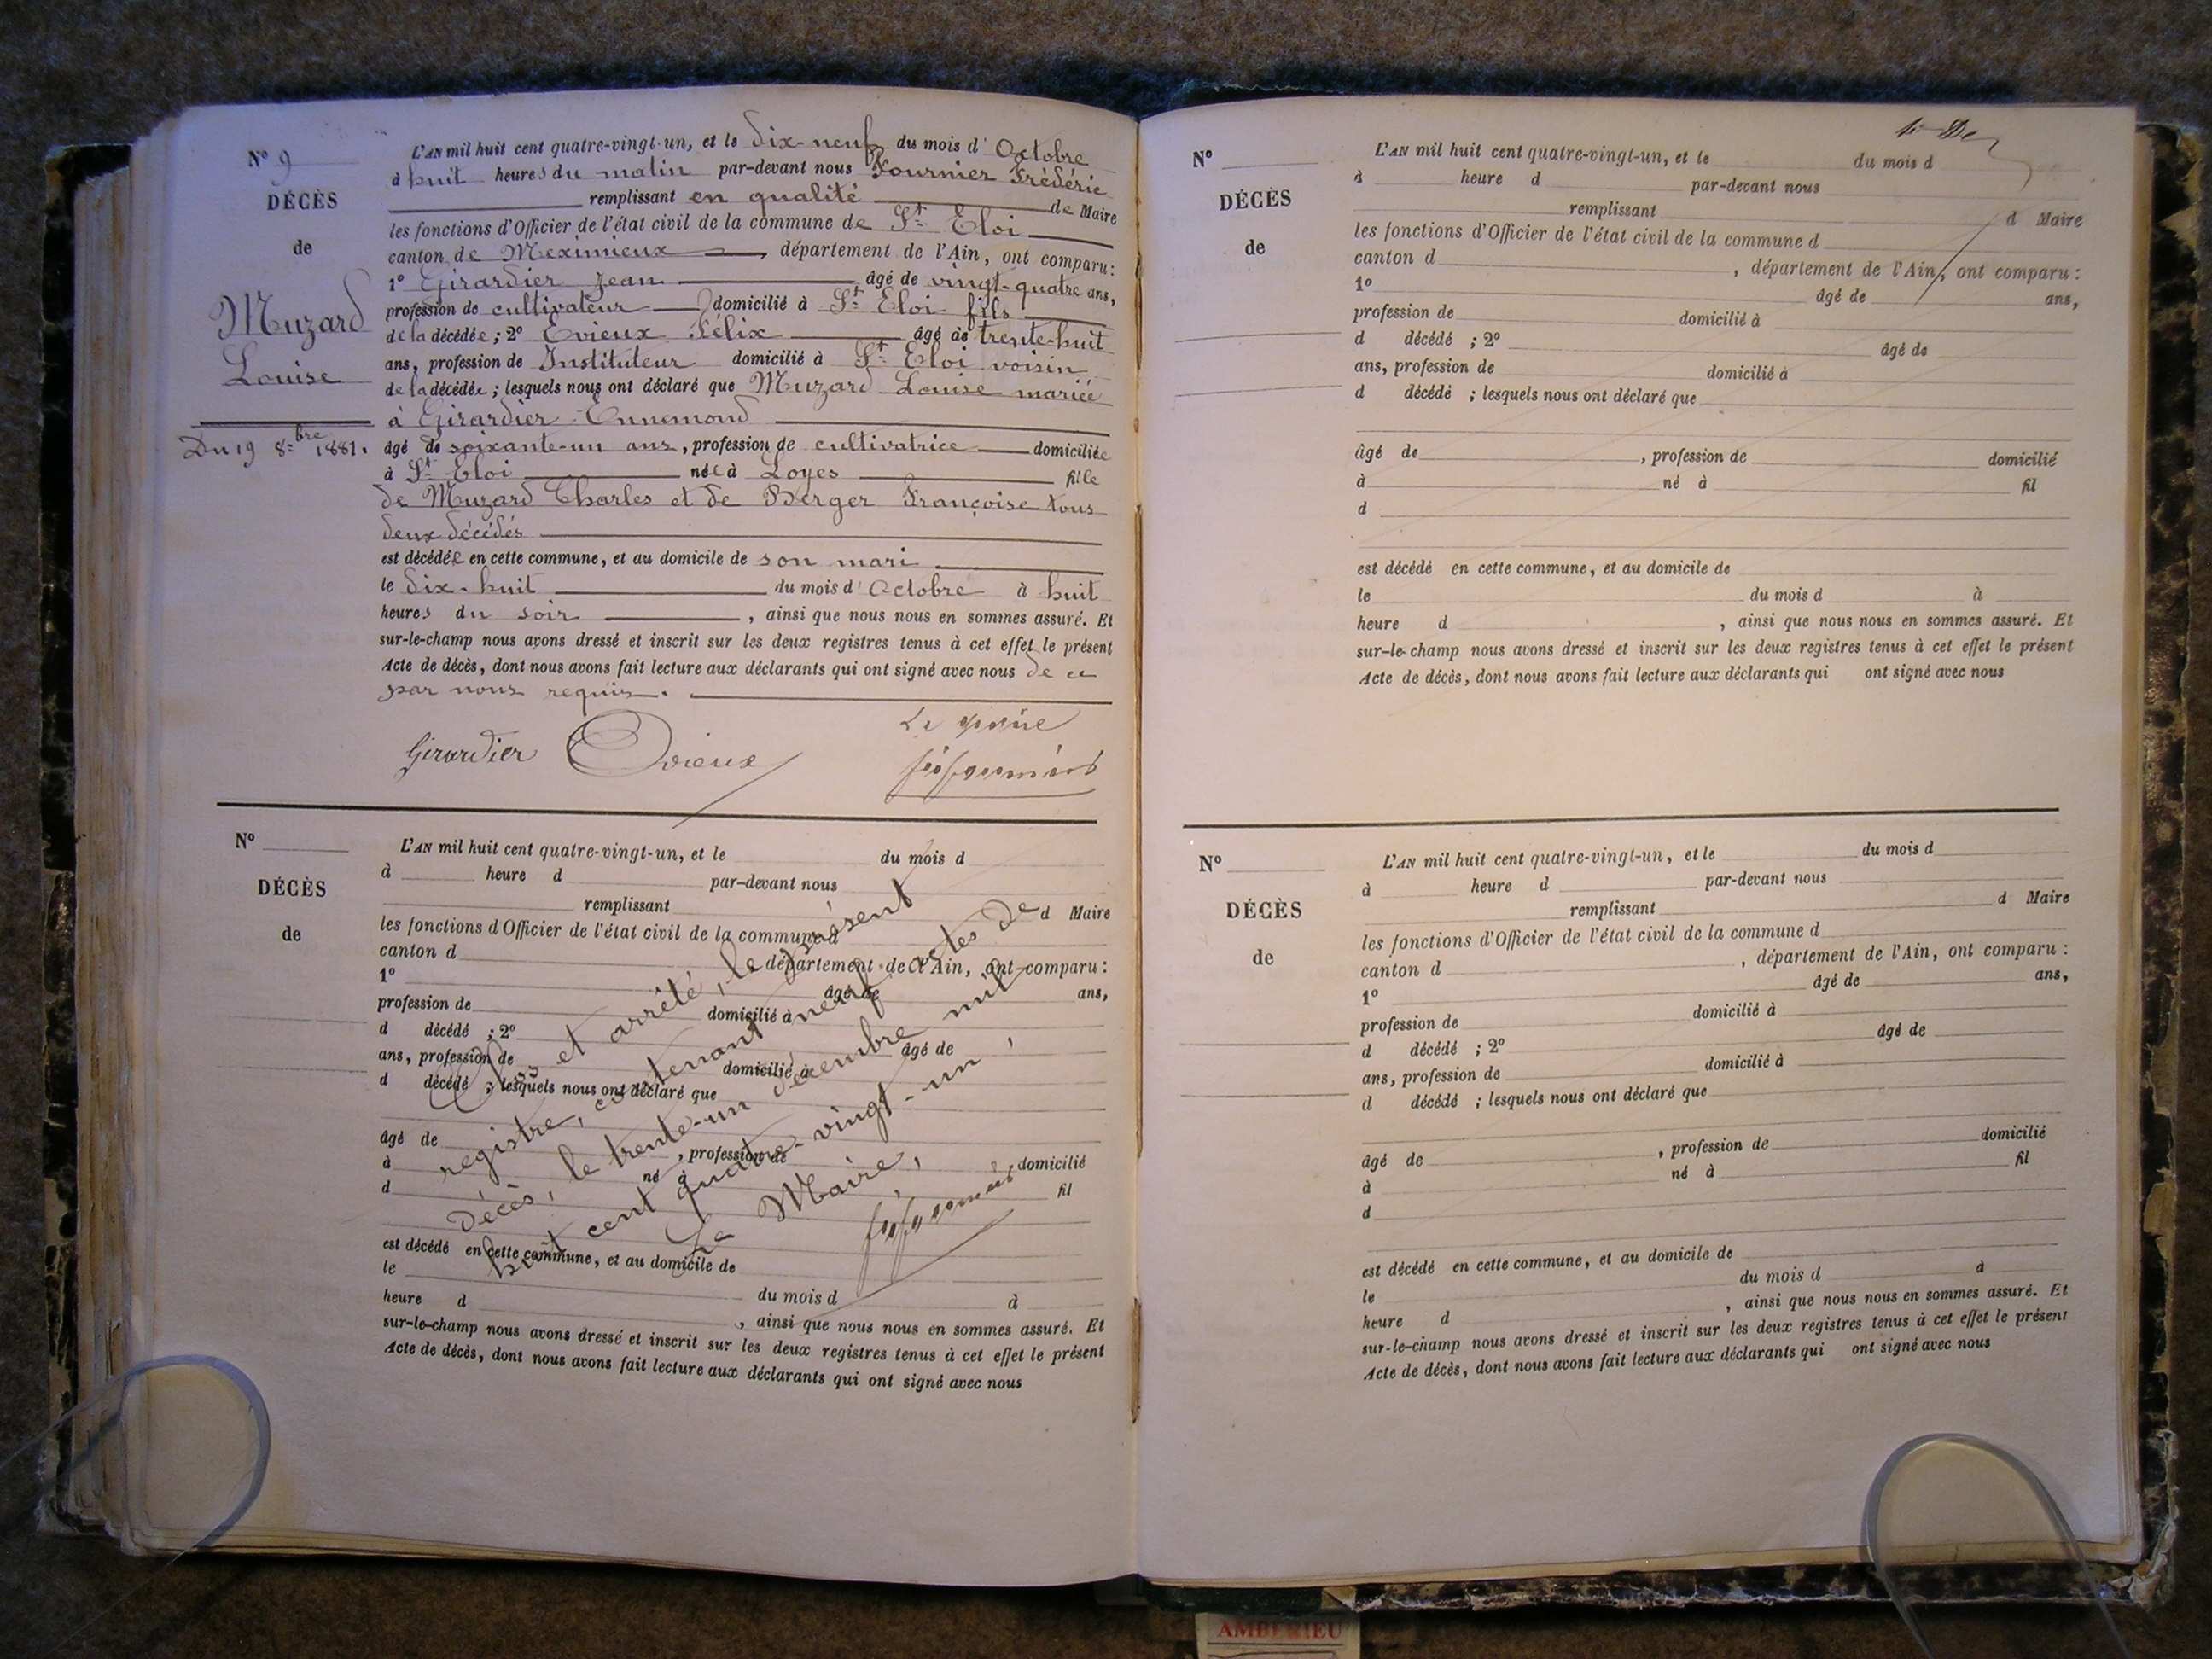 N° 9
DÉCÈS
de
Muzard
Louise
Du 19 8bre 1881.
L'AN mil huit cent quatre-vingt-un, et le dix-neuf du mois d' Octobre
à huit heures du matin par-devant nous Fournier Frédéric
remplissant en qualité de Maire
les fonctions d'Officier de l'état civil de la commune de St Eloi
canton de Meximieux, département de l'Ain, ont comparu:
1° Girardier Jean âgé de vingt-quatre ans,
profession de cultivateur domicilié à St Eloi fils
de la décédée ; 2° Evieux Félix âgé de trente-huit
ans, profession de Instituteur domicilié à St Eloi voisin
de la décédée ; lesquels nous ont déclaré que Muzard Louise mariée
à Girardier Ennemond
âgé de soixante-un ans, profession de cultivatrice domiciliée
à St Eloi née à Loyes fille
de Muzard Charles et de Berger Françoise tous
deux décédés
est décédée en cette commune, et au domicile de son mari
le dix-huit du mois d' Octobre à huit
heures du soir, ainsi que nous nous en sommes assuré. Et
sur-le-champ nous avons dressé et inscrit sur les deux registres tenus à cet effet le présent
Acte de décès, dont nous avons fait lecture aux déclarants qui ont signé avec nous de ce
par nous requis.
Le maire
Girardier Evieux
N°
DÉCÈS
de
L'AN mil huit cent quatre-vingt-un, et le du mois d
à heure d par-devant nous
remplissant d Maire
les fonctions d'Officier de l'état civil de la commune d
canton d département de l'Ain, ont comparu:
1° âgé de ans,
profession de domicilié à
d décédé ; 2° âgé de
ans, profession de domicilié à
d décédé ; lesquels nous ont déclaré que
âgé de , profession de domicilié
à né à fil
d
est décédé en cette commune, et au domicile de
le du mois d à
heure d , ainsi que nous nous en sommes assuré. Et
sur-le-champ nous avons dressé et inscrit sur les deux registres tenus à cet effet le présent
Acte de décès, dont nous avons fait lecture aux déclarants qui ont signé avec nous
Clos et arrêté, le présent
registre, contenant neuf actes de
décès, le trente-un décembre mil
huit cent quatre-vingt-un,
Le Maire,
N°
DÉCÈS
de
L'AN mil huit cent quatre-vingt-un, et le du mois d
à heure d par-devant nous
remplissant d Maire
les fonctions d'Officier de l'état civil de la commune d
canton d , département de l'Ain, ont comparu :
1° âgé de ans,
profession de domicilié à
d décédé ; 2° âgé de
ans, profession de domicilié à
d décédé ; lesquels nous ont déclaré que
âgé de , profession de domicilié
à né à fil
d
est décédé en cette commune, et au domicile de
le du mois d à
heure d , ainsi que nous nous en sommes assuré. Et
sur-le-champ nous avons dressé et inscrit sur les deux registres tenus à cet effet le présent
Acte de décès, dont nous avons fait lecture aux déclarants qui ont signé avec nous
N°
DÉCÈS
de
L'AN mil huit cent quatre-vingt-un, et le du mois d
à heure d par-devant nous
remplissant d Maire
les fonctions d'Officier de l'état civil de la commune d
canton d , département de l'Ain, ont comparu :
1° âgé de ans,
profession de domicilié à
d décédé ; 2° âgé de
ans, profession de domicilié à
d décédé ; lesquels nous ont déclaré que
âgé de , profession de domicilié
à né à fil
d
est décédé en cette commune, et au domicile de
le du mois d à
heure d , ainsi que nous nous en sommes assuré. Et
sur-le-champ nous avons dressé et inscrit sur les deux registres tenus à cet effet le présent
Acte de décès, dont nous avons fait lecture aux déclarants qui ont signé avec nous
AMBERIEU